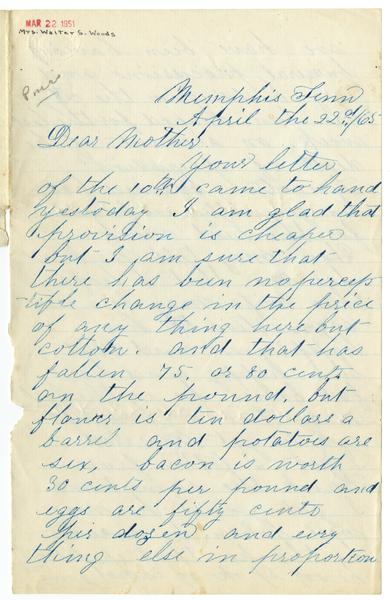 MAR 22 1951
Mrs. Walter S. Woods
Memphis Tenn
April the 22d/65
Dear Mother
Your letter
of the 10th came to hand
yestoday I am glad that
provision is cheaper
but I am sure that
there has been no percep
tible change in the price
of any thing here but
cotton. and that has
fallen 75, or 80 cents
on the pound, but
flower is ten dollars a
barrel and potatoes are
six, bacon is worth
30 cents per pound and
eggs are fifty cents
per dozen and evry
thing else in proportion